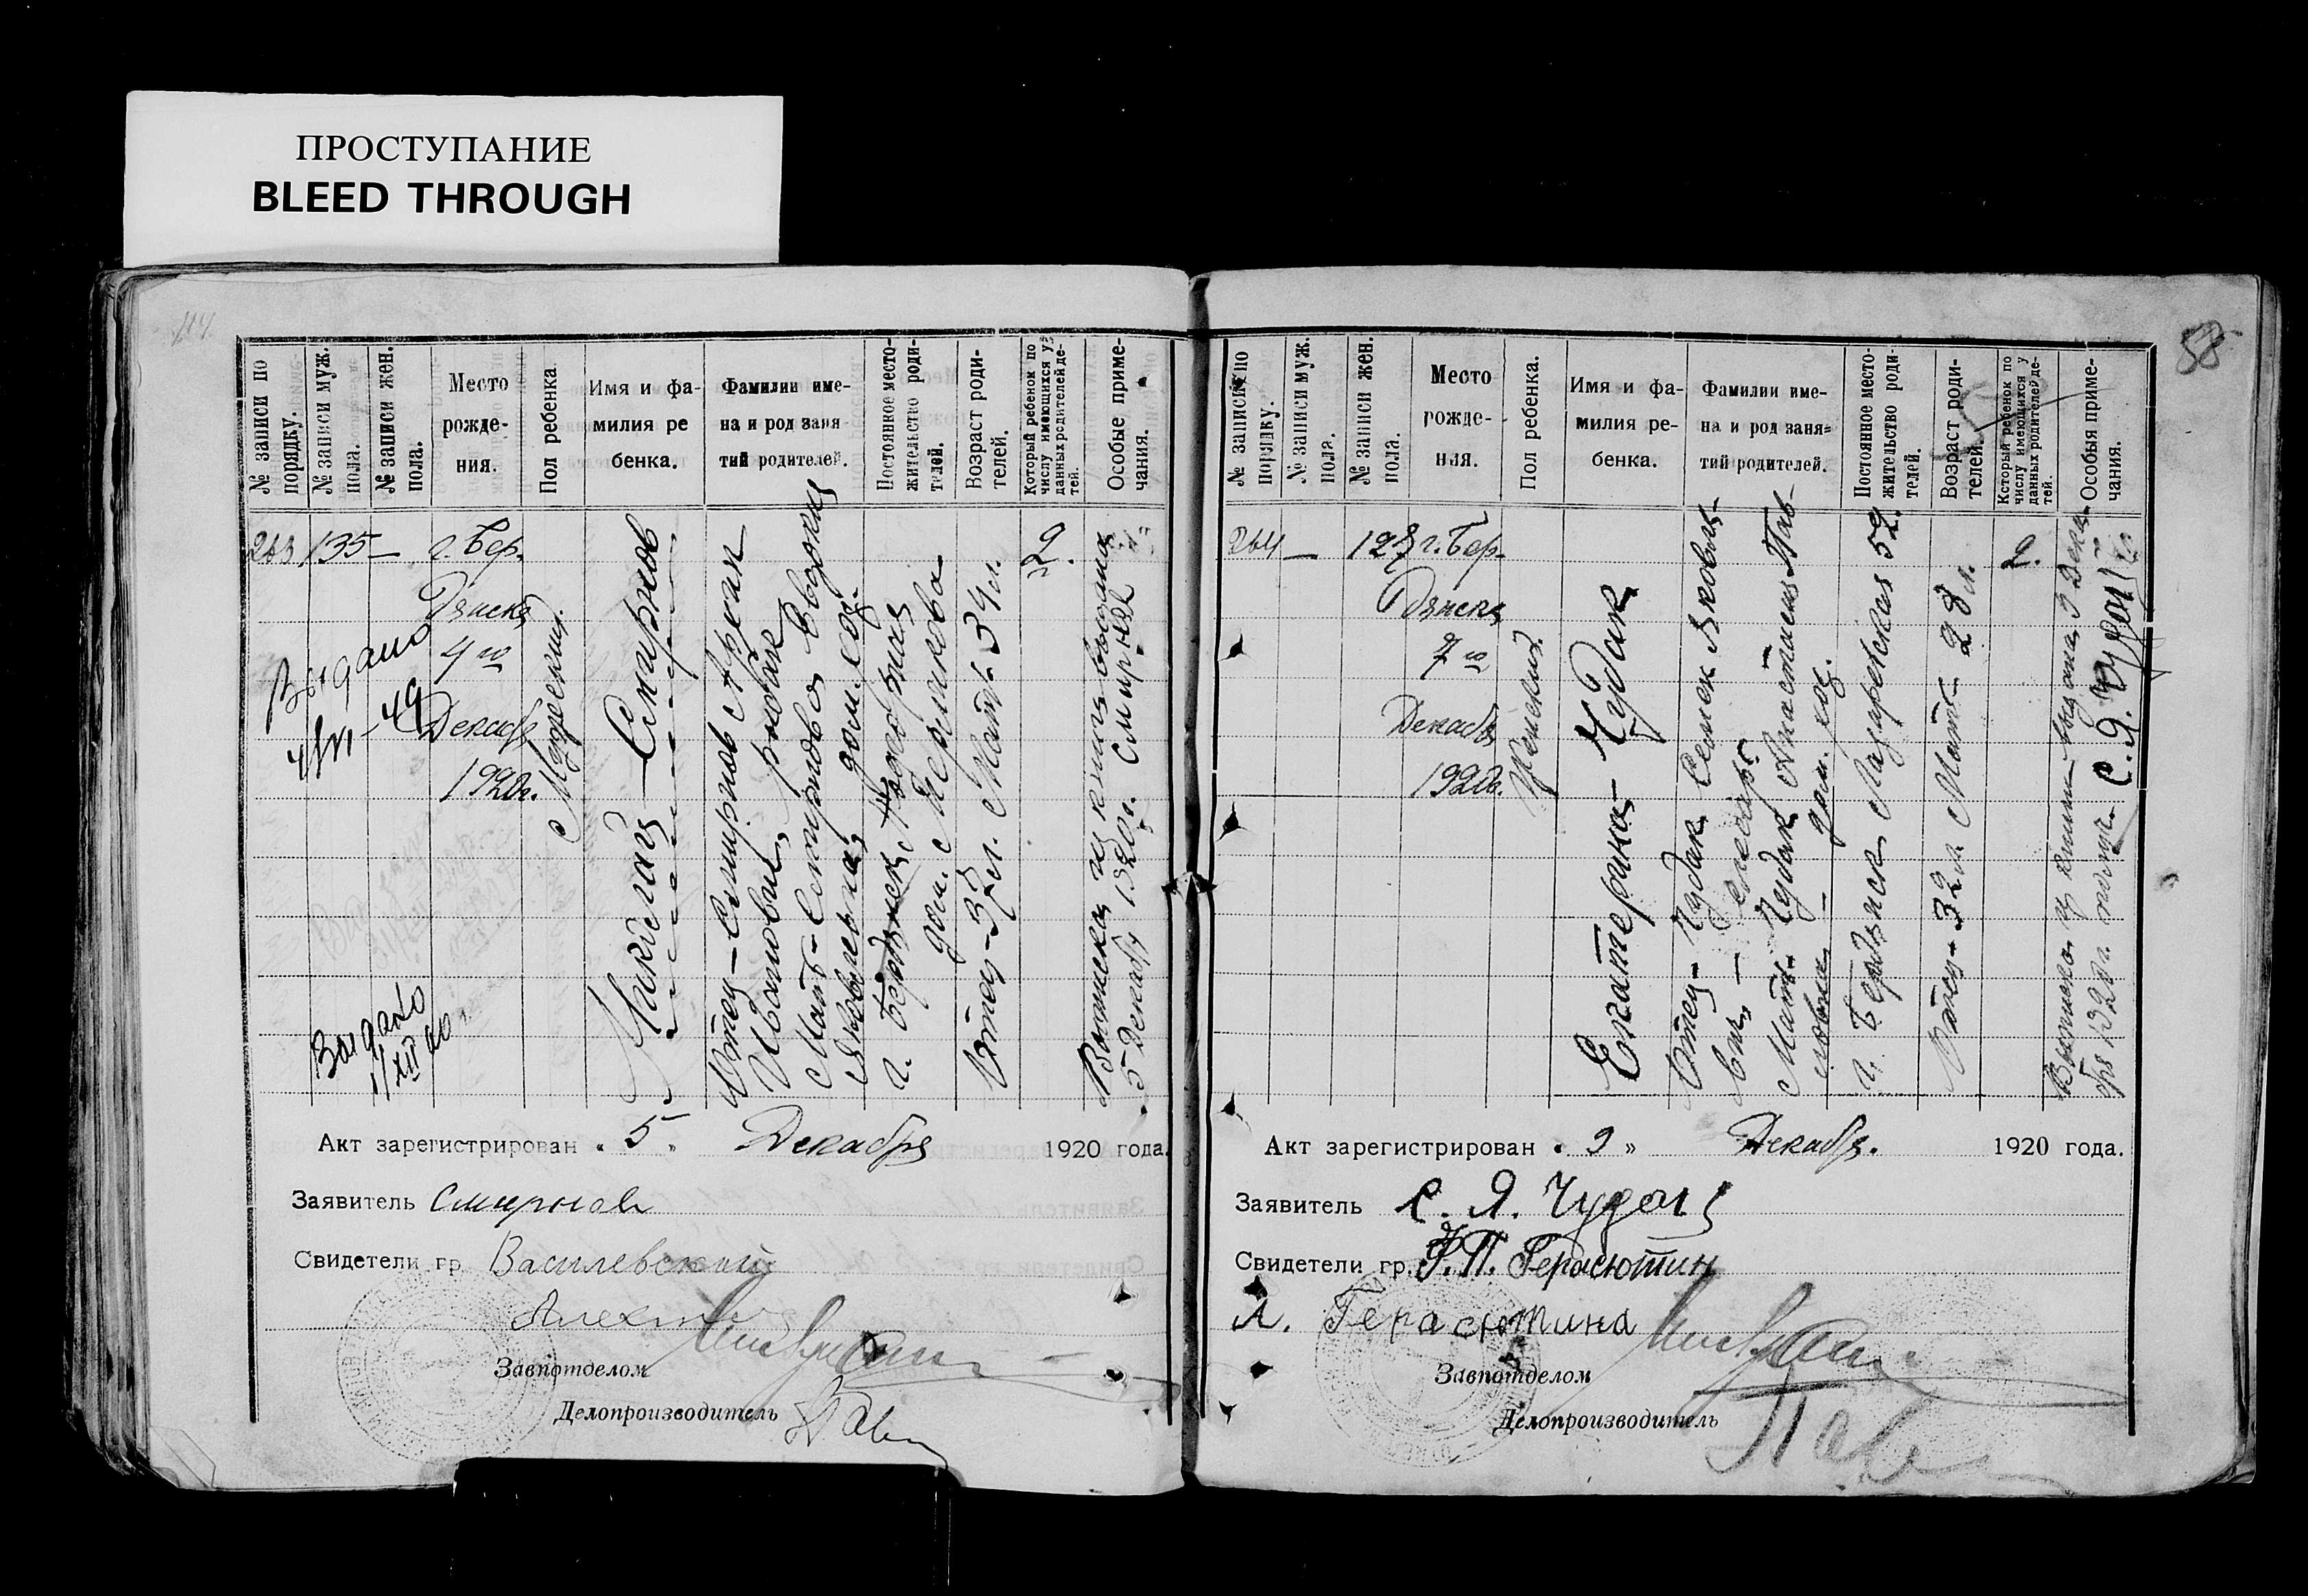 ПРОСТУПАНИЕ
BLEED THROUGH
№ записи по
порядку.
№ записи муж.
пола.
№ записи жен.
пола.
Место
рожде-
ния.
Пол ребенка.
Имя и фа-
милия ре
бенка.
Фамилии име-
на и род заня
тий родителей.
Постоянное место-
жительство роди-
телей.
Возраст роди-
телей.
Который ребенок по
числу имеющихся у
данных родителей де-
тей.
Особые приме-
чания.
263
135
—
г. Бер-
дянск
4го
Декабр
1920г.
Мужеский.
Николай — Смирнов
Отец — Смирнов
Ивановича, рыбак
Мать — Смирнова Евдокия
Яковлевна, дом. хоз.
г. Бердянск
дом. Мерликова
Отец — 37 л. Мать — 34 л.
2.
Выписка из книги выдана
5 Декабря 1920 г. Смирнов
Выдано
4/VI - 49
Выдано
1/XII 40
Акт зарегистрирован „ 5 „ Декабря 1920 года.
Заявитель Смирнов
Свидетели гр. Василевский
Завпотделом
Делопроизводитель
58
№ записи по
порядку.
№ записи муж.
пола.
№ записи жен.
пола.
Место
рожде-
ния.
Пол ребенка.
Имя и фа-
милия ре-
бенка.
Фамилии име-
на и род заня-
тий родителей.
Постоянное место-
жительство роди-
телей.
Возраст роди-
телей.
Который ребенок по
числу имеющихся у
данных родителей де-
тей.
Особыя приме-
чания.
264
—
128
г. Бер-
дянск
7го
Декабр
1920г.
Женский.
Екатерина — Чудак
Отец — Чудак Семен Яковле-
вич — слесарь
Мать — Чудак Анастасия Пав-
ловна — дом. хоз.
г. Бердянск Лазаретская 52.
Отец — 32 л Мать — 28 л.
2.
Выписка из книги выдана 9 Дека-
бря 1920 г. получ. С. Я. Чудак
Акт зарегистрирован „ 9 „ Декабр. 1920 года.
Заявитель С. Я. Чудак
Свидетели гр. Ф. П. Герасютин
Л. Герасютина
Завпотделом
Делопроизводитель